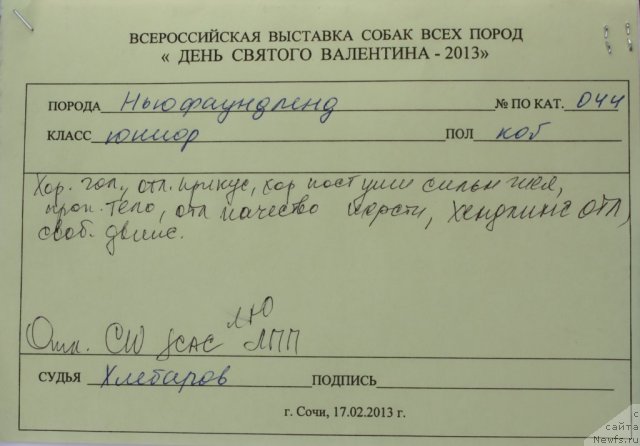 ВСЕРОССИЙСКАЯ ВЫСТАВКА СОБАК ВСЕХ ПОРОД
« ДЕНЬ СВЯТОГО ВАЛЕНТИНА - 2013»
ПОРОДА Ньюфаундленд № ПО КАТ. 044
КЛАСС юниор ПОЛ коб
Хор. гол, отл. прикус, хор пост уши сильн шея,
проп. тело, отл качество шерсти, Хендлинг ОТЛ,
своб. движ.
ЛЮ
Отл. CW JCAC ЛПП
СУДЬЯ Хлебаров ПОДПИСЬ
г. Сочи, 17.02.2013 г.
с
сайта
Newfs.ru